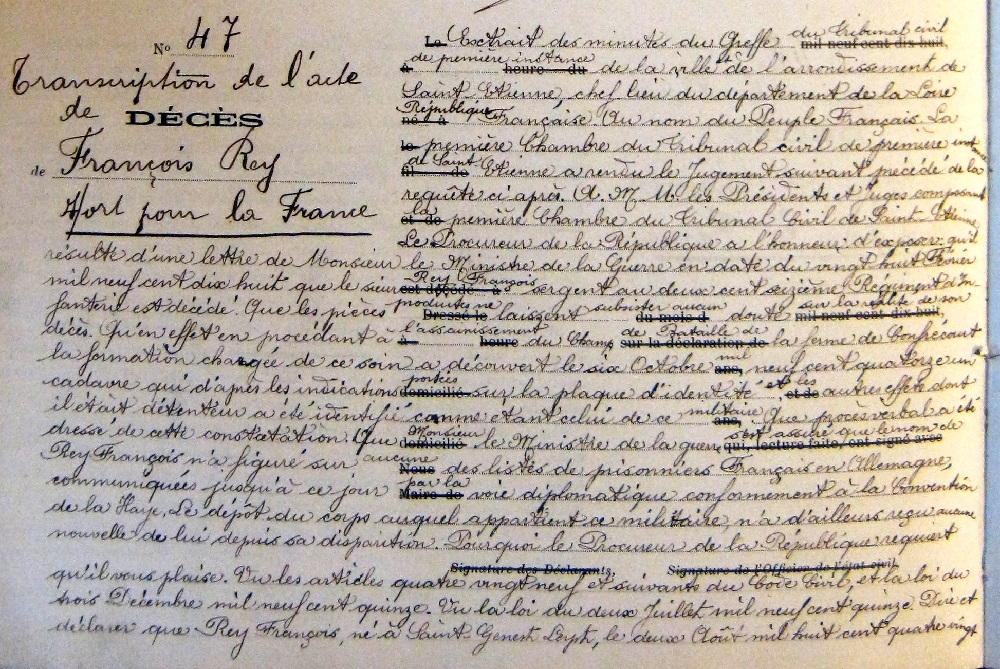 N° 47
Transcription de l'acte
de DÉCÈS
de François Rey
Mort pour la France
Le Extrait des minutes du Greffe du Tribunal civil mil neuf cent dix huit,
de première instance à heure du de la ville de l'arrondissement de
Saint Etienne, chef lieu du département de la Loire
République né à Française. Au nom du Peuple Français. La
le première Chambre du Tribunal civil de première inst
de Saint fil de Etienne a rendu le Jugement suivant précédé de la
requête ci après. A M. M. les Présidents et Juges composant
la et de première Chambre du Tribunal Civil de Saint Etienne
Le Procureur de la République a l'honneur d'exposer qu'il
résulte d'une lettre de Monsieur le Ministre de la Guerre en date du vingt huit
mil neuf cent dix huit que le sieur Rey François est décédé à sergent au deux cent seizième Régiment d'In
fanterie est décédé. Que les pièces produites ne Dressé le laissent subsister aucun du mois d doute sur la réalité de son mil neuf cent dix huit,
décès. Qu'en effet en procédant à l'assainissement à heure du Champ de Bataille de sur la déclaration de la ferme de Confrécourt
la formation chargée de ce soin a découvert le six Octobre mil ans, neuf cent quatorze un
cadavre qui d'après les indications portées domicilié sur la plaque d'identité et les et de autres effets dont
il était détenteur a été identifié comme étant celui de ce militaire ans, Que procès verbal a été
dressé de cette constatation. Que Monsieur domicilié le Ministre de la guerre s'est assuré que le nom de qui, lecture faite, ont signé avec
Rey François n'a figuré sur aucune Nous des listes de prisonniers Français en Allemagne,
communiquées jusqu'à ce jour par la Maire de voie diplomatique conformément à la Convention
de la Haye. Le dépôt du corps auquel appartient ce militaire n'a d'ailleurs reçu aucune
nouvelle de lui depuis sa disparition. Pourquoi le Procureur de la République requiert
Signature des Déclarants, Signature de l'Officier de l'état civil
qu'il vous plaise. Vu les articles quatre vingt neuf et suivants du Code Civil, et la loi du
trois Décembre mil neuf cent quinze. Vu la loi du deux Juillet mil neuf cent quinze. Dire et
déclarer que Rey François, né à Saint Genest Lerpt, le deux Août mil huit cent quatre vingt